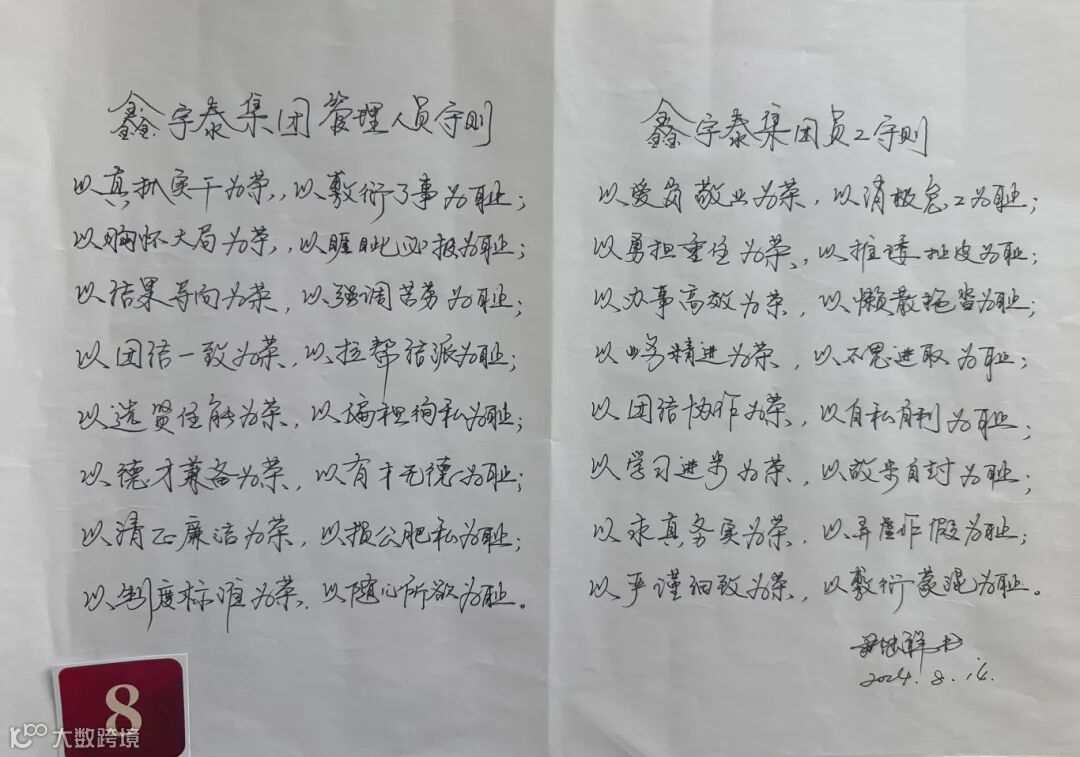 鑫宇泰集团管理人员守则
以真抓实干为荣,以敷衍了事为耻;
以胸怀大局为荣,以睚眦必报为耻;
以结果导向为荣,以强调苦劳为耻;
以团结一致为荣,以拉帮结派为耻;
以选贤任能为荣,以偏袒徇私为耻;
以德才兼备为荣,以有才无德为耻;
以清正廉洁为荣,以损公肥私为耻;
以制度标准为荣,以随心所欲为耻。
鑫宇泰集团员工守则
以爱岗敬业为荣,以消极怠工为耻;
以勇担重任为荣,以推诿扯皮为耻;
以办事高效为荣,以懒散拖沓为耻;
以业务精进为荣,以不思进取为耻;
以团结协作为荣,以自私自利为耻;
以学习进步为荣,以故步自封为耻;
以求真务实为荣,以弄虚作假为耻;
以严谨细致为荣,以敷衍蒙混为耻。
书
2024.8.16.
8
大数跨境